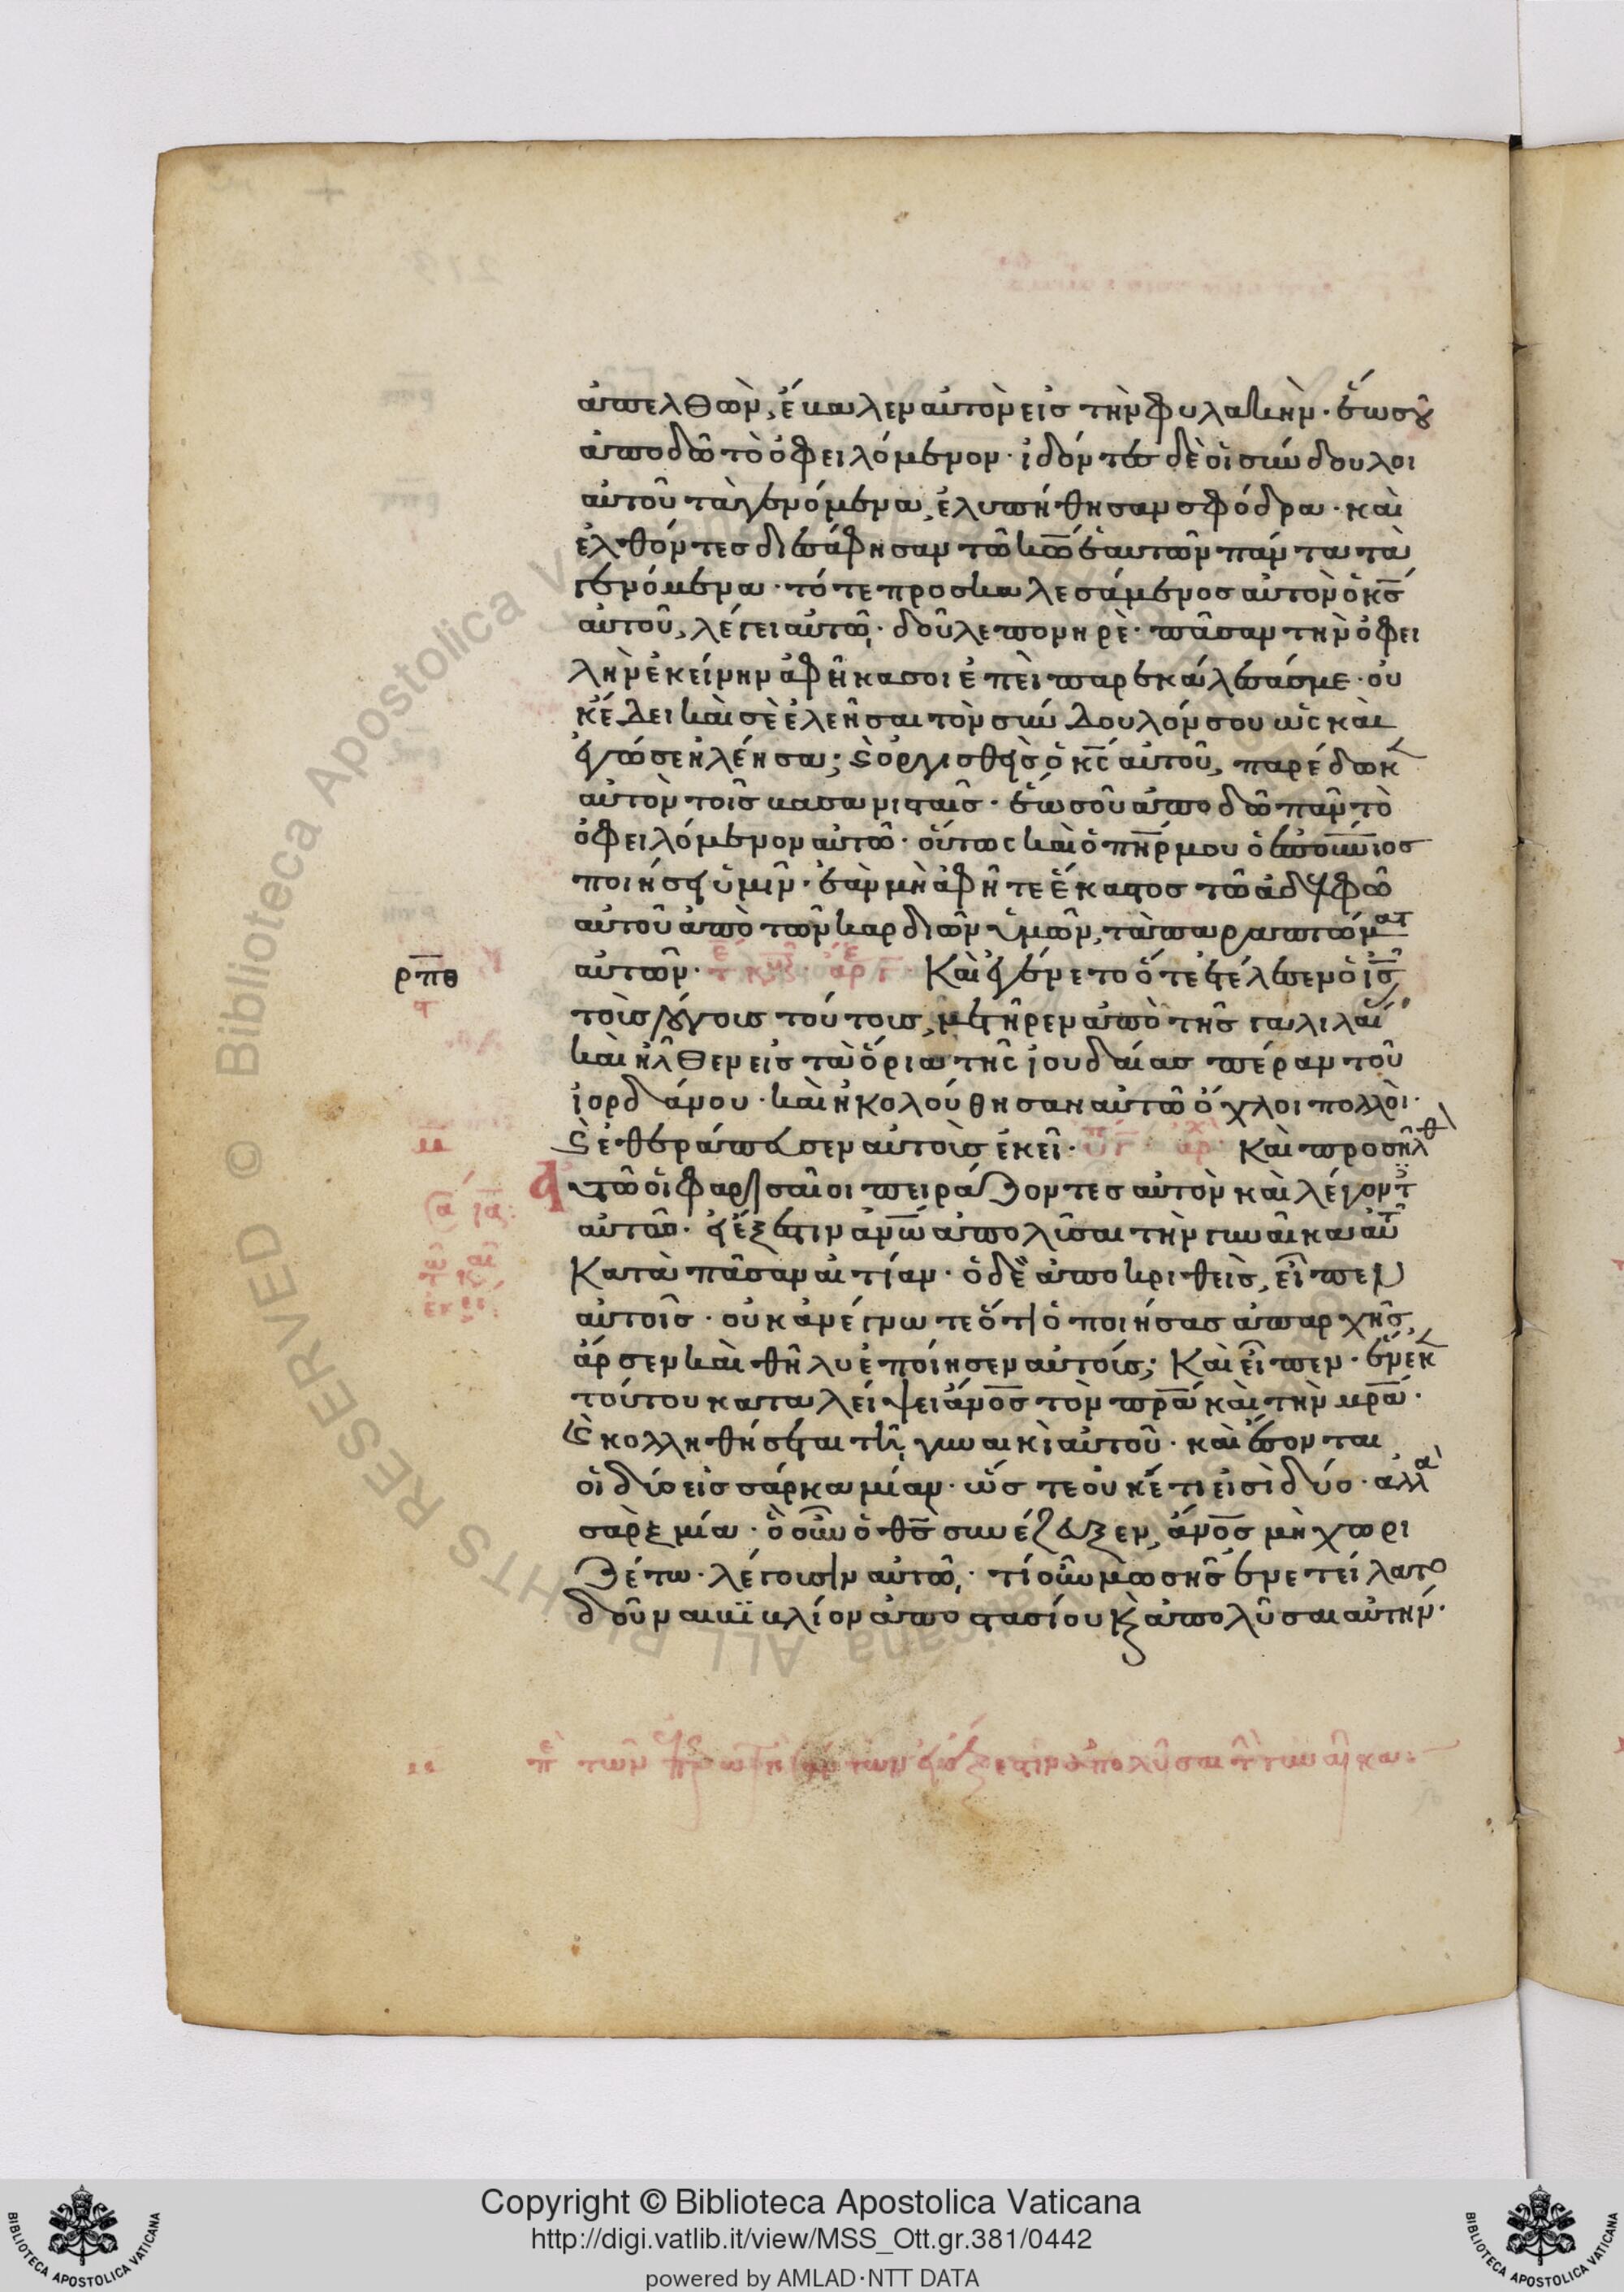 ἀπελθὼν, ἔβαλεν αὐτὸν εἰς τὴν φυλακὴν· ἕως οὗ
ἀποδῶ τὸ ὀφειλόμενον· ἰδόντες δὲ οἱ σύνδουλοι
αὐτοῦ τὰ γενόμενα, ἐλυπήθησαν σφόδρα· καὶ
ἐλθόντες διεσάφησαν τῶ κ̅ω̅ ἑαυτῶν πάντα τὰ
γενόμενα· τότε προσκαλεσάμενος αὐτὸν ὁ κ̅ς̅
αὐτοῦ, λέγει αὐτῶ· δοῦλε πονηρὲ· πᾶσαν τὴν ὀφει
λὴν ἐκείνην ἀφῆκα σοι ἐπεὶ παρεκάλεσάς με· οὐ
κ ἔδει καὶ σὲ ἐλεῆσαι τὸν σύνδουλόν σου ὡς καὶ
ἐγώ σε ἠλέησα; καὶ ὀργισθεὶς ὁ κ̅ς̅ αὐτοῦ, παρέδωκ
αὐτὸν τοῖς βασανισταῖς· ἕως οὗ ἀποδῶ πᾶν τὸ
ὀφειλόμενον αὐτῶ· οὕτως καὶ ὁ π̅η̅ρ̅ μου ὁ ἐπο̅υ̅ν̅ιος
ποιήσει ὑμῖν· ἐὰν μὴ ἀφῆτε ἕκαστος τῶ ἀδελφῶ
αὐτοῦ ἀπὸ τῶν καρδιῶν ὑμῶν, τὰ παραπτώματ
ρπθ αὐτῶν· Καὶ ἐγένετο ὅτε ἐτέλεσεν ὁ ι̅ς̅
τοὺς λόγους τούτους, μετῆρεν ἀπὸ τῆς γαλιλαί
καὶ ἦλθεν εἰς τὰ ὅρια τῆς ἰουδαίας πέραν τοῦ
ἰορδάνου· καὶ ἠκολούθησαν αὐτῶ ὄχλοι πολλοὶ·
καὶ ἐθεράπευσεν αὐτοὺς ἐκεῖ· Καὶ προσῆλθ
αὐτῶ οἱ φαρισαῖοι πειράζοντες αὐτὸν καὶ λέγοντ
αὐτῶ· εἰ ἔξεστιν α̅ν̅ω̅ ἀπολῦσαι τὴν γυναῖκα αὐτ
Κατὰ πᾶσαν αἰτίαν· ὁ δὲ ἀποκριθεὶς, εἶπεν
αὐτοῖς· οὐκ ἀνέγνωτε ὅτι ὁ ποιήσας ἀπαρχῆς,
ἄρσεν καὶ θῆλυ ἐποίησεν αὐτούς; Καὶ εἶπεν· ἕνεκ
τούτου καταλείψει α̅ν̅ο̅ς̅ τὸν π̅ρ̅α̅ καὶ τὴν μ̅ρ̅α̅·
καὶ κολληθήσεται τῆ γυναικὶ αὐτοῦ· καὶ ἔσονται
οἱ δύο εἰς σάρκα μίαν· ὥστε οὐκέτι εἰσὶ δύο· ἀλλὰ
σὰρξ μία· ὃ οὖν ὁ θ̅ς̅ συνέζευξεν, α̅ν̅ο̅ς̅ μὴ χωρι
ζέτω· λέγουσιν αὐτῶ· τί οὖν μωσῆς ἐνετείλατο
δοῦναι βιβλίον ἀποστασίου καὶ ἀπολῦσαι αὐτήν·
Copyright © Biblioteca Apostolica Vaticana
http://digi.vatlib.it/view/MSS_Ott.gr.381/0442
powered by AMLAD·NTT DATA